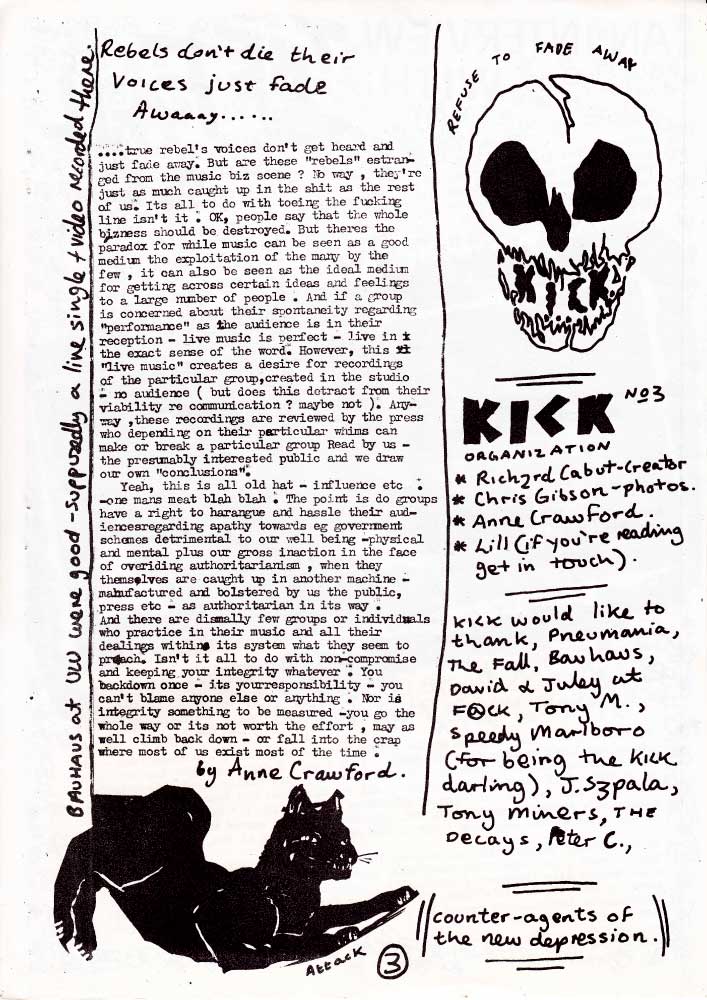 BAUHAUS at UW were good - supposedly a live single + video recorded there.
Rebels don't die their
Voices just fade
Awaaay......
....true rebel's voices don't get heard and
just fade away. But are these "rebels" estran-
ged from the music biz scene ? No way , they're
just as much caught up in the shit as the rest
of us. Its all to do with toeing the fucking
line isn't it . OK, people say that the whole
bizness should be destroyed. But theres the
paradox for while music can be seen as a good
medium the exploitation of the many by the
few , it can also be seen as the ideal medium
for getting across certain ideas and feelings
to a large number of people . And if a group
is concerned about their spontaneity regarding
"performance" as the audience is in their
reception - live music is perfect - live in
the exact sense of the word. However, this
"live music" creates a desire for recordings
of the particular group,created in the studio
- no audience ( but does this detract from their
viability re communication ? maybe not ). Any-
way ,these recordings are reviewed by the press
who depending on their particular whims can
make or break a particular group Read by us -
the presumably interested public and we draw
our own "conclusions".
Yeah, this is all old hat - influence etc .
-one mans meat blah blah . The point is do groups
have a right to harangue and hassle their aud-
iencesregarding apathy towards eg government
schemes detrimental to our well being -physical
and mental plus our gross inaction in the face
of overiding authoritarianism , when they
themselves are caught up in another machine -
manufactured and bolstered by us the public,
press etc - as authoritarian in its way .
And there are dismally few groups or individuals
who practice in their music and all their
dealings within its system what they seem to
preach. Isn't it all to do with non-compromise
and keeping your integrity whatever . You
backdown once - its yourresponsibility - you
can't blame anyone else or anything . Nor is
integrity something to be measured -you go the
whole way or its not worth the effort , may as
well climb back down - or fall into the crap
where most of us exist most of the time .
by Anne Crawford.
Attack
3
REFUSE TO FADE AWAY
KICK
KICK No3
ORGANIZATION
* Rich2rd Cabut-creator
* Chris Gibson-photos.
* Anne Crawford.
* Lill (if you're reading
get in touch).
KICK would like to
thank, Pneumania,
The Fall, Bauhaus,
David & Juley at
FⒶCK, Tony M.,
Speedy Marlboro
(for being the KICK
darling), J.S3pala,
Tony Miners, THE
Decays, Peter C.,
counter-agents of
the new depression.